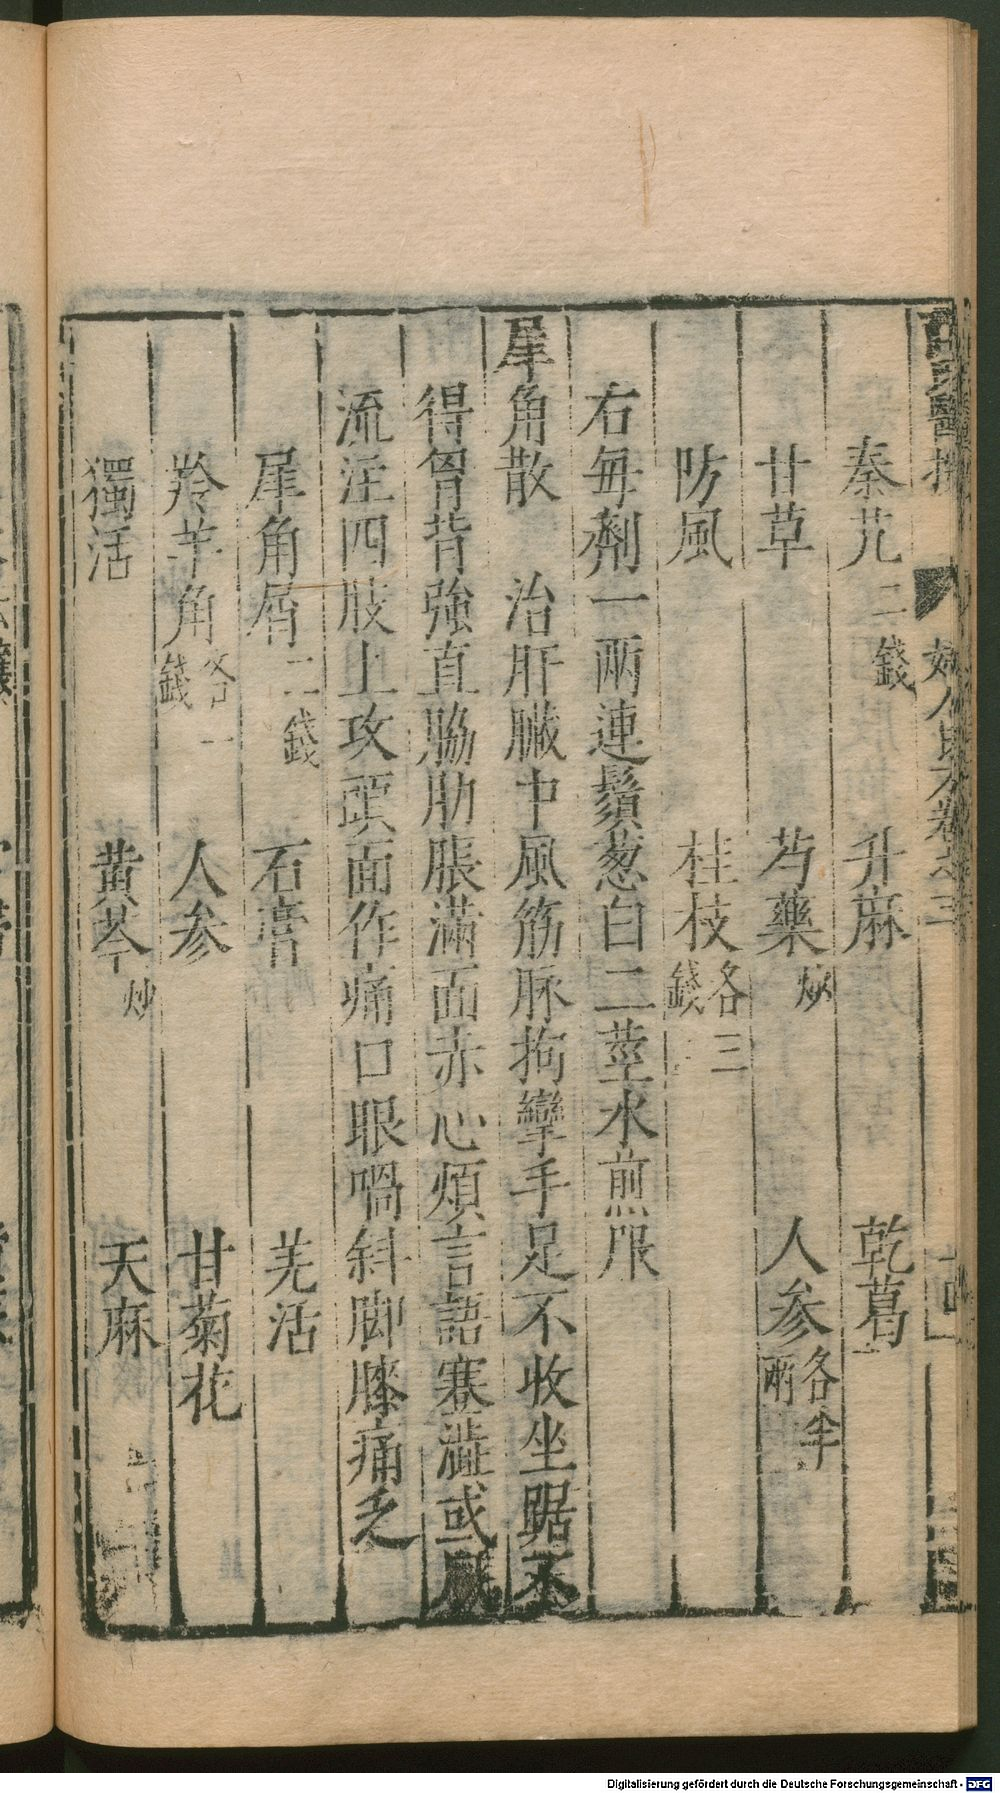 婦人良方卷之三
秦艽二錢 升麻 乾葛
甘草 芍藥炒 人參各半兩
防風 桂枝各三錢
右毎劑一兩連鬚葱白二莖水煎服
犀角散 治肝臟中風筋脉拘攣手足不收坐踞不
得胷背強直脇肋脹滿面赤心煩言語蹇澁或風
流注四肢上攻頭面作痛口眼喎斜脚膝痛乏
犀角屑二錢 石膏 羌活
羚羊角各一錢 人參 甘菊花
獨活 黄芩炒 天麻
Digitalisierung gefördert durch die Deutsche Forschungsgemeinschaft - DFG